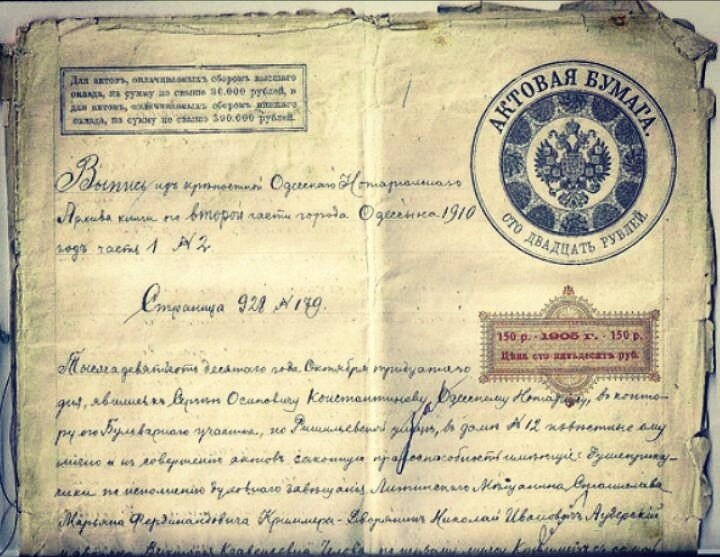 Для актовъ, оплачиваемыхъ сборомъ высшаго
оклада, на сумму не свыше 30.000 рублей, и
для актовъ, оплачиваемыхъ сборомъ низшаго
оклада, на сумму не свыше 300.000 рублей.
АКТОВАЯ БУМАГА.
СТО ДВАДЦАТЬ РУБЛЕЙ.
Выпись изъ крѣпостной Одесскаго Нотаріальнаго
Архива книги по второй части города Одессы на 1910
годъ часть 1 № 2
Страница 928 № 179.
150 р. - 1905 г. - 150 р.
Цѣна сто пятьдесятъ руб.
Тысяча девятьсотъ десятаго года Октября тридцатаго
дня, явились къ Сергѣю Осиповичу Константинову, Одесскому Нотаріусу, въ конто-
ру его Бульварнаго участка, по Ришельевской улицѣ, въ домѣ № 12 извѣстные ему
лично и къ совершенію актовъ законную правоспособность имѣющіе: Душеприка-
щики по исполненію духовнаго завѣщанія Литинскаго Мѣщанина Станислава
Марьяна Фердинандовича Дворянинъ Николай Ивановичъ